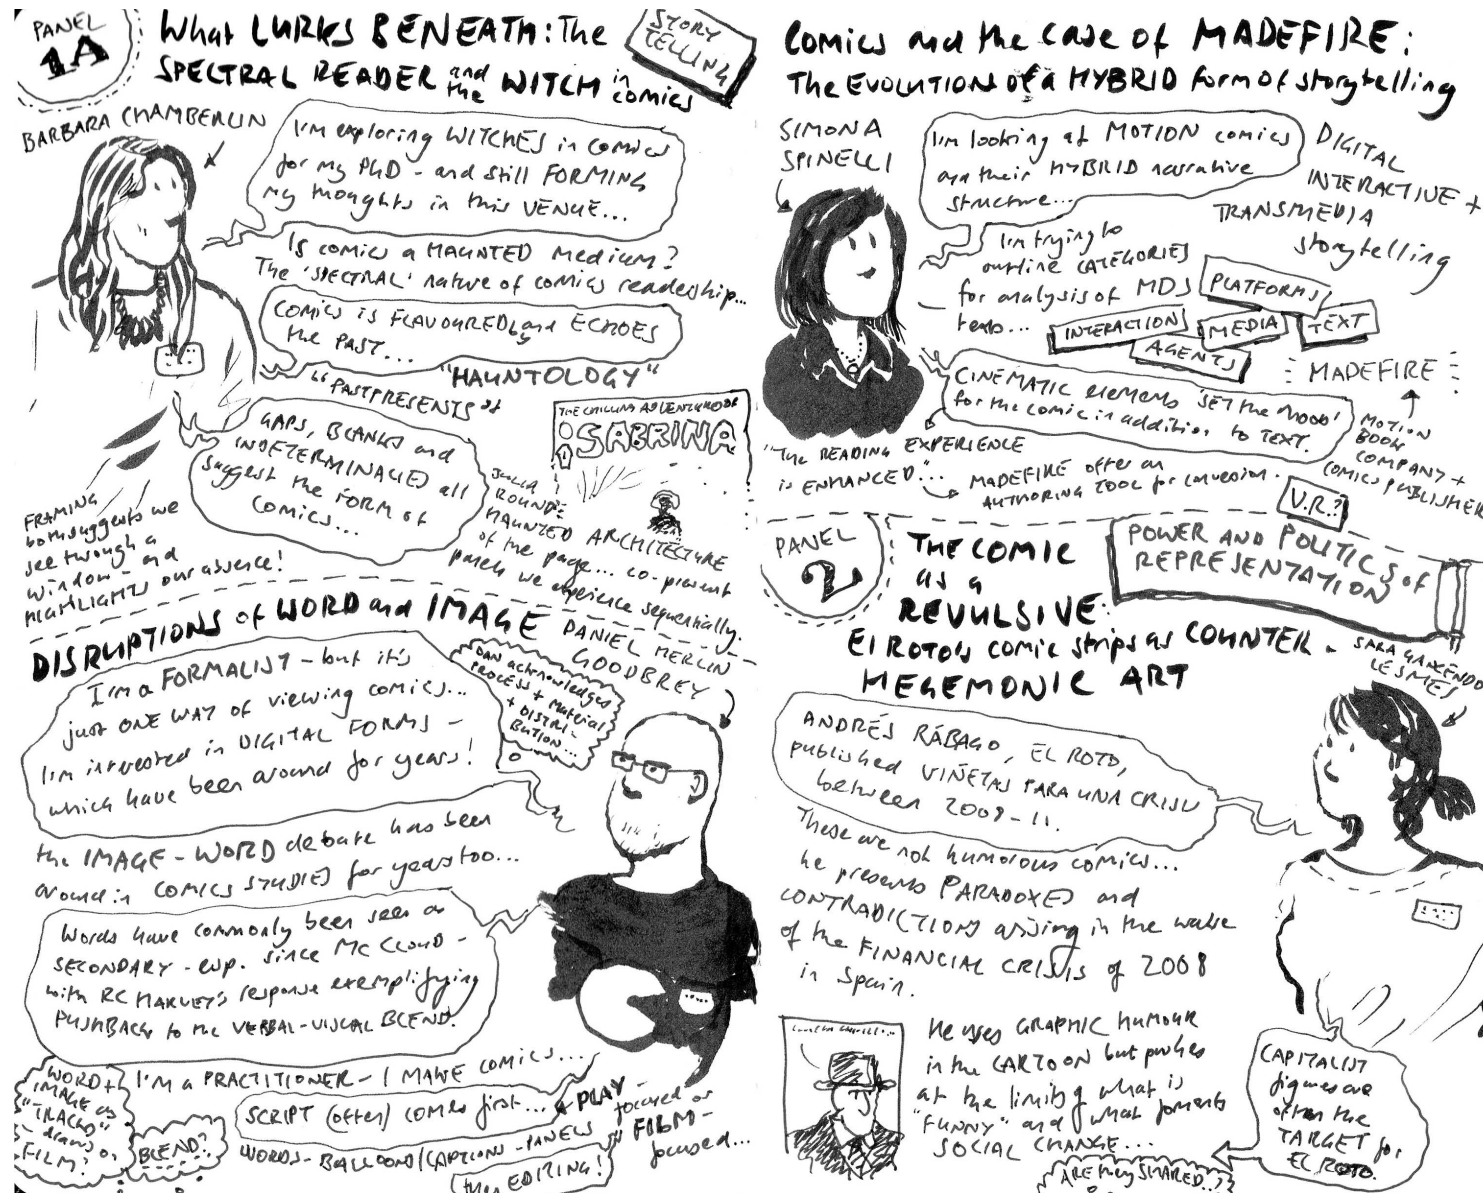 PANEL
1A
What LURKS BENEATH: The
SPECTRAL READER and the WITCH in comics
STORY
TELLING
BARBARA CHAMBERLIN
I'm exploring WITCHES in comics
for my PhD - and still FORMING
my thoughts in this VENUE...
Is comics a HAUNTED medium?
The 'SPECTRAL' nature of comics readership...
COMICS IS FLAVOURED by and ECHOES
the PAST...
"HAUNTOLOGY"
"PASTPRESENTS"
GAPS, BLANKS and
INDETERMINACIES all
suggest the FORM of
comics...
FRAMING
both suggests we
see through a
window - and
HIGHLIGHTS our absence!
THE CHILLING ADVENTURES OF
SABRINA
JULIA
ROUND:
HAUNTED ARCHITECTURE
of the page... co-present
panels we experience sequentially.
DISRUPTIONS of WORD and IMAGE
DANIEL MERLIN
GOODBREY
I'm a FORMALIST - but it's
just ONE WAY of viewing comics...
I'm interested in DIGITAL FORMS -
which have been around for years!
DAN acknowledges
PROCESS + Material
+ DISTRI-
BUTION...
the IMAGE - WORD debate has been
around in COMICS STUDIES for years too...
Words have commonly been seen as
SECONDARY - esp. since MCCLOUD -
with RC HARVEY'S response exemplifying
PUSHBACK to the VERBAL-VISUAL BLEND.
I'm a PRACTITIONER - I MAKE COMICS...
WORD +
IMAGE as
"TRACKS"
- draws on
FILM?
BLEND?
SCRIPT (often) COMES first...
a PLAY -
focused or
FILM -
focused...
WORDS - BALLOONS/CAPTIONS - PANELS
then EDITING!
Comics and the case of MADEFIRE:
The EVOLUTIONS of a HYBRID form of storytelling
SIMONA
SPINELLI
I'm looking at MOTION comics
and their HYBRID narrative
structure...
DIGITAL
INTERACTIVE +
TRANSMEDIA
storytelling
I'm trying to
outline CATEGORIES
for analysis of MDS
texts...
PLATFORMS
INTERACTION
MEDIA
TEXT
AGENTS
MADEFIRE
MOTION
BOOK
COMPANY +
COMICS PUBLISHER
CINEMATIC elements 'SET the MOOD'
for the comic in addition to TEXT.
"THE READING EXPERIENCE
is ENHANCED"...
MADEFIRE offer an
AUTHORING TOOL for conversion.
V.R.?
PANEL
2
THE COMIC
as a
REVULSIVE:
El ROTO's comic strips as COUNTER-
HEGEMONIC ART
POWER AND POLITICS of
REPRESENTATION
LESMES
ANDRÉS RÁBAGO, EL ROTO,
published VIÑETAS PARA UNA CRISIS
between 2008-11.
These are not humorous comics...
he presents PARADOXES and
CONTRADICTIONS arising in the wake
of the FINANCIAL CRISIS of 2008
in Spain.
He uses GRAPHIC HUMOUR
in the CARTOON but pushes
at the limits of what is
"FUNNY" and what foments
SOCIAL CHANGE...
CAPITALIST
figures are
often the
TARGET for
EL ROTO.
ARE they SHARED..?